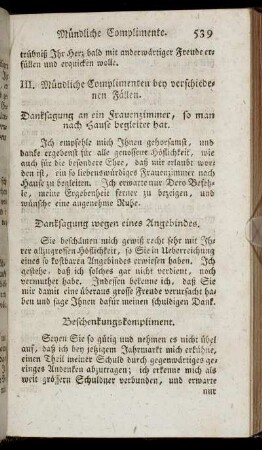 Mündliche Complimente. 539
trübniß Ihr Herz bald mit anderwärtiger Freude er-
füllen und erquicken wolle.
III. Mündliche Complimenten bey verschiede-
nen Fällen.
Danksagung an ein Frauenzimmer, so man
nach Hause begleitet hat.
Ich empfehle mich Ihnen gehorsamst, und
danke ergebenst für alle genossene Höflichkeit, wie
auch für die besondere Ehre, daß mir erlaubt wor-
den ist, ein so liebenswürdiges Frauenzimmer nach
Hause zu begleiten. Ich erwarte nur Dero Befeh-
le, meine Ergebenheit ferner zu bezeigen, und
wünsche eine angenehme Ruhe.
Danksagung wegen eines Angebindes.
Sie beschämen mich gewiß recht sehr mit Ih-
rer allzugrossen Höflichkeit, so Sie in Ueberreichung
eines so kostbaren Angebindes erwiesen haben. Ich
gestehe, daß ich solches gar nicht verdient, noch
vermuthet habe. Indessen bekenne ich, daß Sie
mir damit eine überaus grosse Freude verursacht ha-
ben und sage Ihnen dafür meinen schuldigen Dank.
Beschenkungskompliment.
Seyen Sie so gütig und nehmen es nicht übel
auf, daß ich bey jetzigem Jahrmarkt mich erkühne,
einen Theil meiner Schuld durch gegenwärtiges ge-
ringes Andenken abzutragen; ich erkenne mich als
weit grössern Schuldner verbunden, und erwarte
nur